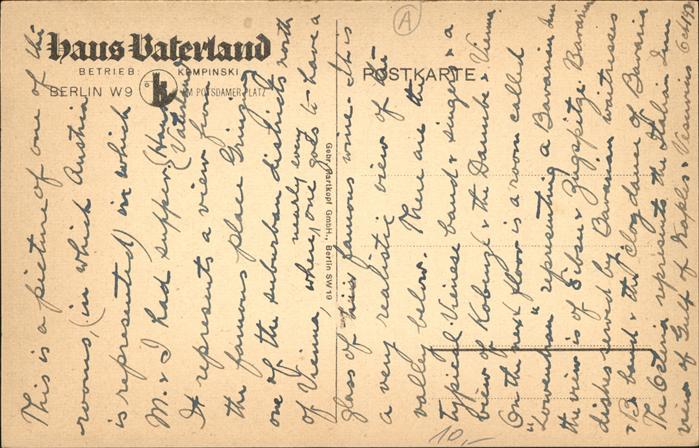 Haus Vaterland
BETRIEB: KEMPINSKI
BERLIN W9 AM POTSDAMER PLATZ
POSTKARTE
A
Gebr. Hartkopf GmbH., Berlin SW 19
10,-
This is a picture of one of the
rooms, (in which Austria
is represented) in which
M. & I had supper. (Haus
Vaterland)
It represents a view from
the famous place Grinzing
one of the suburban districts north
of Vienna, where nearly every one goes to have a
glass of his famous wine. It is
a very realistic view of the
valley below. There are the
typical Vienese band & singers & a
view of Kobenzl & the Danube & Vienna.
On the next floor is a room called
"Lowenbrau" representing a Bavarian Inn
the view is of Eibsee & Zugspitze. Bavarian
dishes served by Bavarian waitresses
& B band & the clog dance of Bavaria
The Osteria represents the Italian Inn
view of Gulf of Naples & Vesuvius